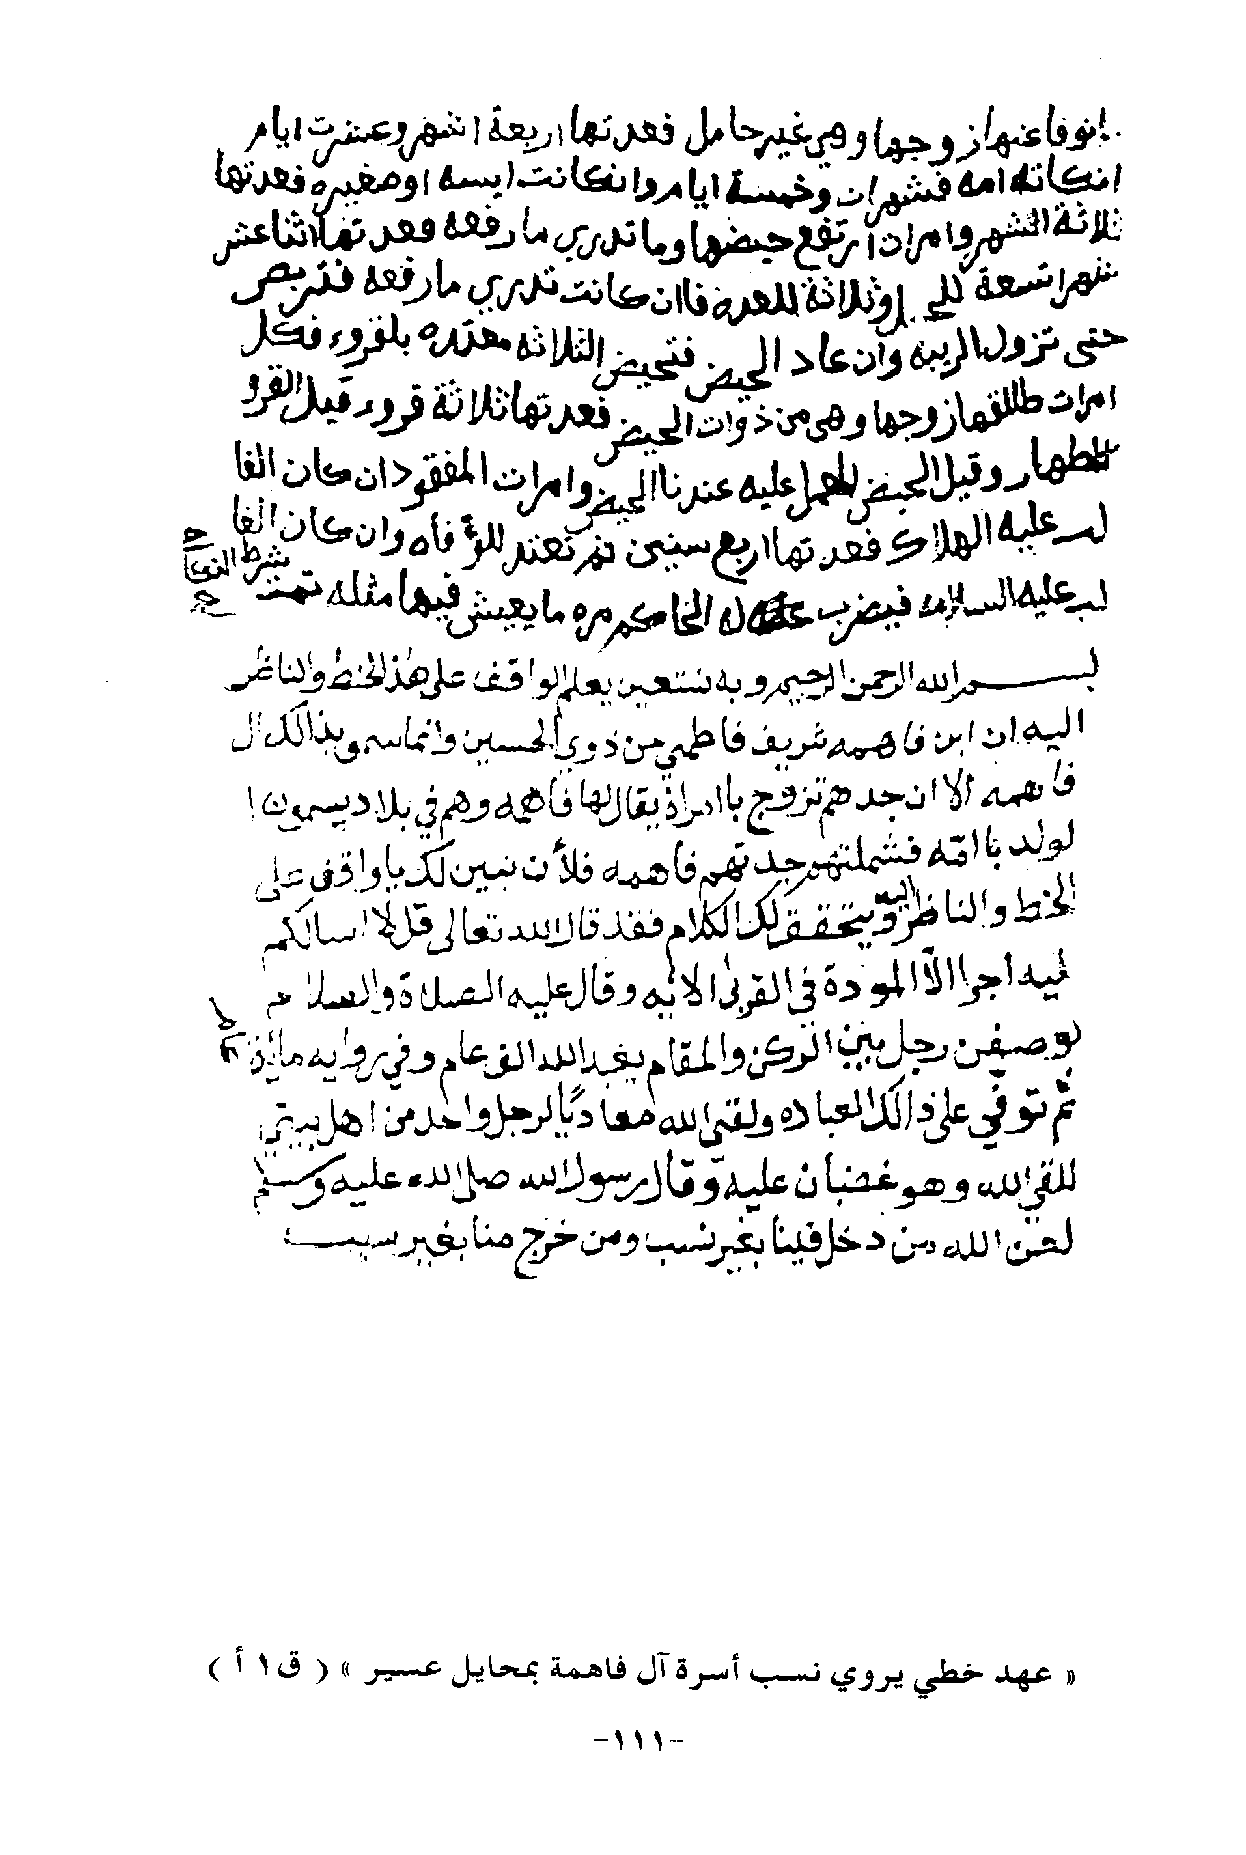 اتوفا عنها زوجها وهي غير حامل فعدتها اربعة اشهر وعشرت ايام
انكانة امه فشهران وخمسة ايام وانكانت ايسه اوصغيره فعدتها
ثلاثة الشهر وامرات ارتفع حيضها وما تدري ما رفعه فعدتها اثنا عشر
شهرا تسعة للحمل وثلاثة للعده فاان كانت تدري مارفعه فتربص
حتى تزول الريبه وان عاد الحيض فتحيض الثلاثه معتده بلقروء فكل
امرات طلقها زوجها وهي من ذوات الحيض فعدتها ثلاثة قروء قيل القرؤ
الطهار وقيل الحيض عليه عندنا الحيض وامرات المفقود ان كان الغا
لب عليه الهلاك فعدتها اربع سنين ثم تعتد للوفاه وان كان الغا
لب عليه السلامه فيضرب له الحاكم مره ما يعيش فيها مثله تمت
بسم الله الرحمن الرحيم وبه نستعين يعلم الواقف على هذ الخط والناظر
اليه ان ابن فاهمه شريف فاطمي من ذوي الحسين وانما سمو بذالك ال
فاهمه الا ان جدهم تزوج باامراة يقال لها فاهمه وهم في بلاد يسمون ا
لولد باامه فشملتهم جدتهم فاهمه فلأن نبين لك ياواقف على
الخط والناظر اليه ويتحقق لك الكلام فقد قال الله تعالى قل لا اسالكم
عليه اجرا الا المودة في القربى الايه وقال عليه الصلاة والسلام
لو صفن رجل بين الركن والمقام يعبد الله الف عام وفي روايه مائة
ثم توفي على ذالك العباده ولقى الله معاديا لرجل واحد من اهل بيتي
للقي الله وهو غضبان عليه وقال رسول الله صلى الله عليه وسلم
لعن الله من دخل فينا بغير نسب ومن خرج منا بغير سبب
« عهد خطي يروي نسب أسرة آل فاهمة بمحايل عسير » ( ق ١ أ )
-١١١-